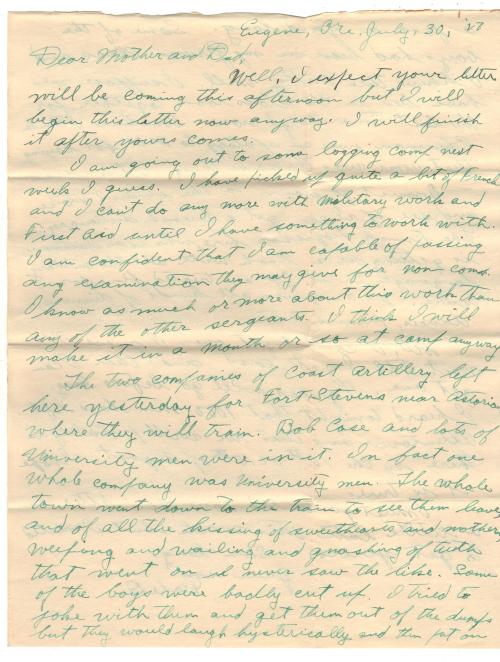 Eugene, Ore. July, 30, '17
Dear Mother and Dad,
Well, I expect your letter
will be coming this afternoon but I will
begin this letter now anyway. I will finish
it after yours comes.
I am going out to some logging camp next
week I guess. I have picked up quite a bit of French
and I can't do any more with Military work and
First Aid until I have something to work with.
I am confident that I am capable of passing
any examination they may give for non coms.
I know as much or more about this work than
any of the other sergeants. I think I will
make it in a month or so at camp anyway
The two companies of Coast Artillery left
here yesterday for Fort Stevens near Astoria
where they will train. Bob Case and lots of
University men were in it. In fact one
whole company was University men. The whole
town went down to the train to see them leave
and of all the kissing of sweethearts and mothers
weeping and wailing and gnashing of teeth
that went on I never saw the like. Some
of the boys were badly cut up. I tried to
joke with them and get them out of the dumps
but they would laugh hysterically and then put on